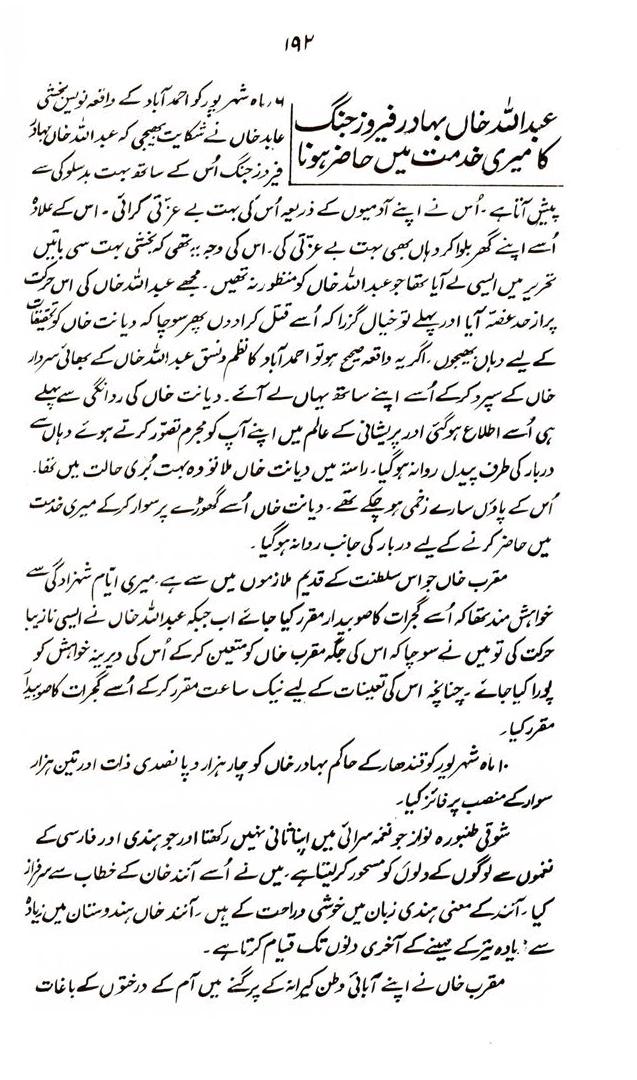 ۱۹۲
عبداللہ خاں بہادر فیروز جنگ
کا میری خدمت میں حاضر ہونا
۶؍ ماہ شہریور کو احمد آباد کے واقعہ نویس بخشی
عابد خاں نے شکایت بھیجی کہ عبداللہ خاں بہادر
فیروز جنگ اُس کے ساتھ بہت بدسلوکی سے
پیش آتا ہے۔ اُس نے اپنے آدمیوں کے ذریعہ اُس کی بہت بے عزتی کرائی۔ اس کے علاوہ
اُسے اپنے گھر بلوا کر وہاں بھی بہت بے عزتی کی۔ اس کی وجہ یہ تھی کہ بخشی بہت سی باتیں
تحریر میں ایسی لے آیا تھا جو عبداللہ خاں کو منظور نہ تھیں۔ مجھے عبداللہ خاں کی اس حرکت
پر از حد غصہ آیا اور پہلے تو خیال گزرا کہ اُسے قتل کرا دوں پھر سوچا کہ دیانت خاں کو تحقیقات
کے لیے وہاں بھیجوں۔ اگر یہ واقعہ صحیح ہو تو احمد آباد کا نظم و نسق عبداللہ خاں کے بھائی سردار
خاں کے سپرد کر کے اُسے اپنے ساتھ یہاں لے آئے۔ دیانت خاں کی روانگی سے پہلے
ہی اُسے اطلاع ہو گئی اور پریشانی کے عالم میں اپنے آپ کو مجرم تصوّر کرتے ہوئے وہاں سے
دربار کی طرف پیدل روانہ ہو گیا۔ راستہ میں دیانت خاں ملا تو وہ بہت بُری حالت میں تھا۔
اُس کے پاؤں سارے زخمی ہو چکے تھے۔ دیانت خاں اُسے گھوڑے پر سوار کر کے میری خدمت
میں حاضر کرنے کے لیے دربار کی جانب روانہ ہو گیا۔
مقرب خاں جو اس سلطنت کے قدیم ملازموں میں سے ہے، میری ایّام شہزادگی سے
خواہش مند تھا کہ اُسے گجرات کا صوبیدار مقرر کیا جائے اب جبکہ عبداللہ خاں نے ایسی نازیبا
حرکت کی تو میں نے سوچا کہ اس کی جگہ مقرب خاں کو متعین کر کے اُس کی دیرینہ خواہش کو
پورا کیا جائے۔ چنانچہ اس کی تعینات کے لیے نیک ساعت مقرر کر کے اُسے گجرات کا صوبیدار
مقرر کیا۔
۱۰ ماہ شہریور کو قندھار کے حاکم بہادر خاں کو چار ہزار و پانصدی ذات اور تین ہزار
سوار کے منصب پر فائز کیا۔
شوقی طنبورہ نواز جو نغمہ سرائی میں اپنا ثانی نہیں رکھتا اور جو ہندی اور فارسی کے
نغموں سے لوگوں کے دلوں کو مسحور کر لیتا ہے۔ میں نے اُسے آنند خان کے خطاب سے سرفراز
کیا۔ آنند کے معنی ہندی زبان میں خوشی و راحت کے ہیں۔ آنند خاں ہندوستان میں زیادہ
سے زیادہ تیر کے مہینے کے آخری دنوں تک قیام کرتا ہے۔
مقرب خاں نے اپنے آبائی وطن کیرانہ کے پرگنے میں آم کے درختوں کے باغات